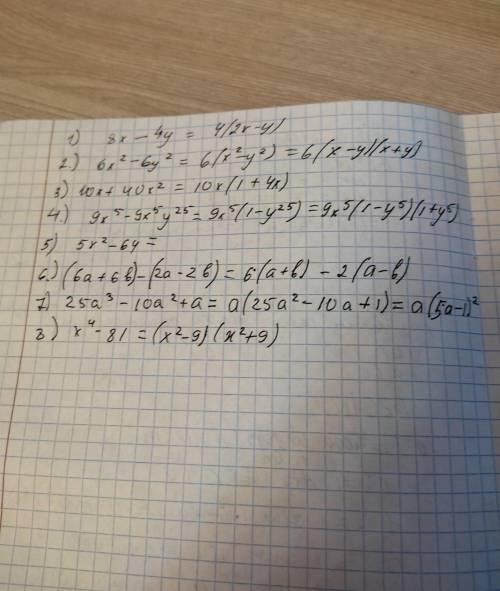 1) 8x - 4y = 4(2x-y)
2) 6x² - 6y² = 6(x²-y²) = 6(x-y)(x+y)
3) 10x + 40x² = 10x(1 + 4x)
4) 9x⁵ - 9x⁵y²⁵ = 9x⁵(1-y²⁵) = 9x⁵(1-y⁵)(1+y⁵)
5) 5x² - 6y =
6) (6a + 6b) - (2a - 2b) = 6(a+b) - 2(a-b)
7) 25a³ - 10a² + a = a(25a² - 10a + 1) = a(5a-1)²
8) x⁴ - 81 = (x²-9)(x²+9)